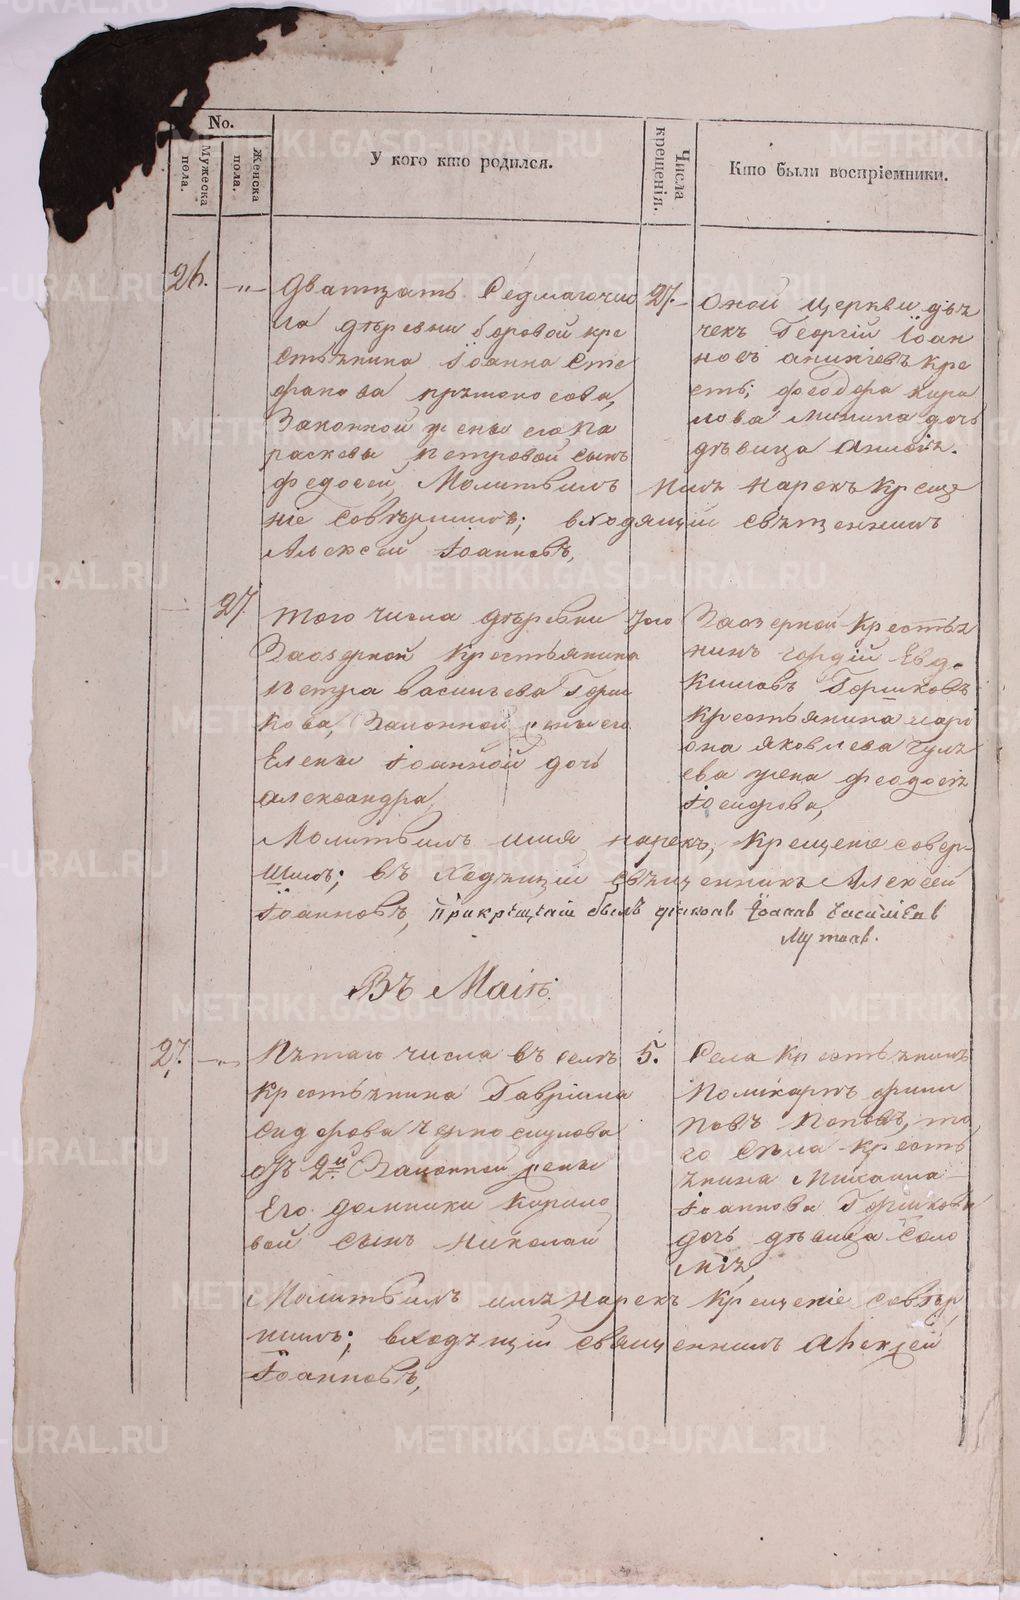 No.
Мужеска пола.
Женска пола.
У кого кто родился.
Числа крещенія.
Кто были воспріемники.
26. -„- Дватцать Седмагочис 27.
ла дѣревни Боровой кре
стьянина Іоанна Сте
фанова
Законной жены его Па
раскевы Петровой сынъ
Федосей, Молитвилъ имя Нарекъ Креще
ніе Совѣршилъ; входящій свѣщенникъ
Алексей Іоанновъ,
Оной церкви дѣя
чекъ Георгій Іоан
новъ
Кири
лова Минина дочь
дѣвица Анисія.
27. Того числа дѣревни того
Заозерной Крестьянина
Петра Васильева Горш
кова, Законной жены его
Елены Іоанной дочь
Александра,
Молитвилъ имя нарекъ, Крещеніе совер-
шилъ; въ Ходящій свѣщенникъ Алексей
Іоанновъ, Прикрещеніи былъ діаконъ Іоаннъ Василіевъ
Мутинъ.
Заозерной Крестья
нинъ Гордій Евдо
кимовъ Горшковъ
Крестьянина Мирі
она Яковлева Гуля
ева жена Феодосія
Іосифова,
Въ Маіѣ.
27. -„- Пятаго числа въ селѣ 5.
Крестьянина Гавріила
Сидорова
отъ 2й Законной жены
Его Домники Кирило
вой сынъ Николай
Молитвилъ имя Нарекъ Крещеніе совѣр
шилъ; входящій священникъ Алексей
Іоанновъ,
Села Крестьянинъ
Поликарпъ Фили
повъ Поповъ, то
го Села Кресть
янина Михаила
Іоаннова Горшкова
дочь дѣвица Соло
мія,
METRIKI.GASO-URAL.RU